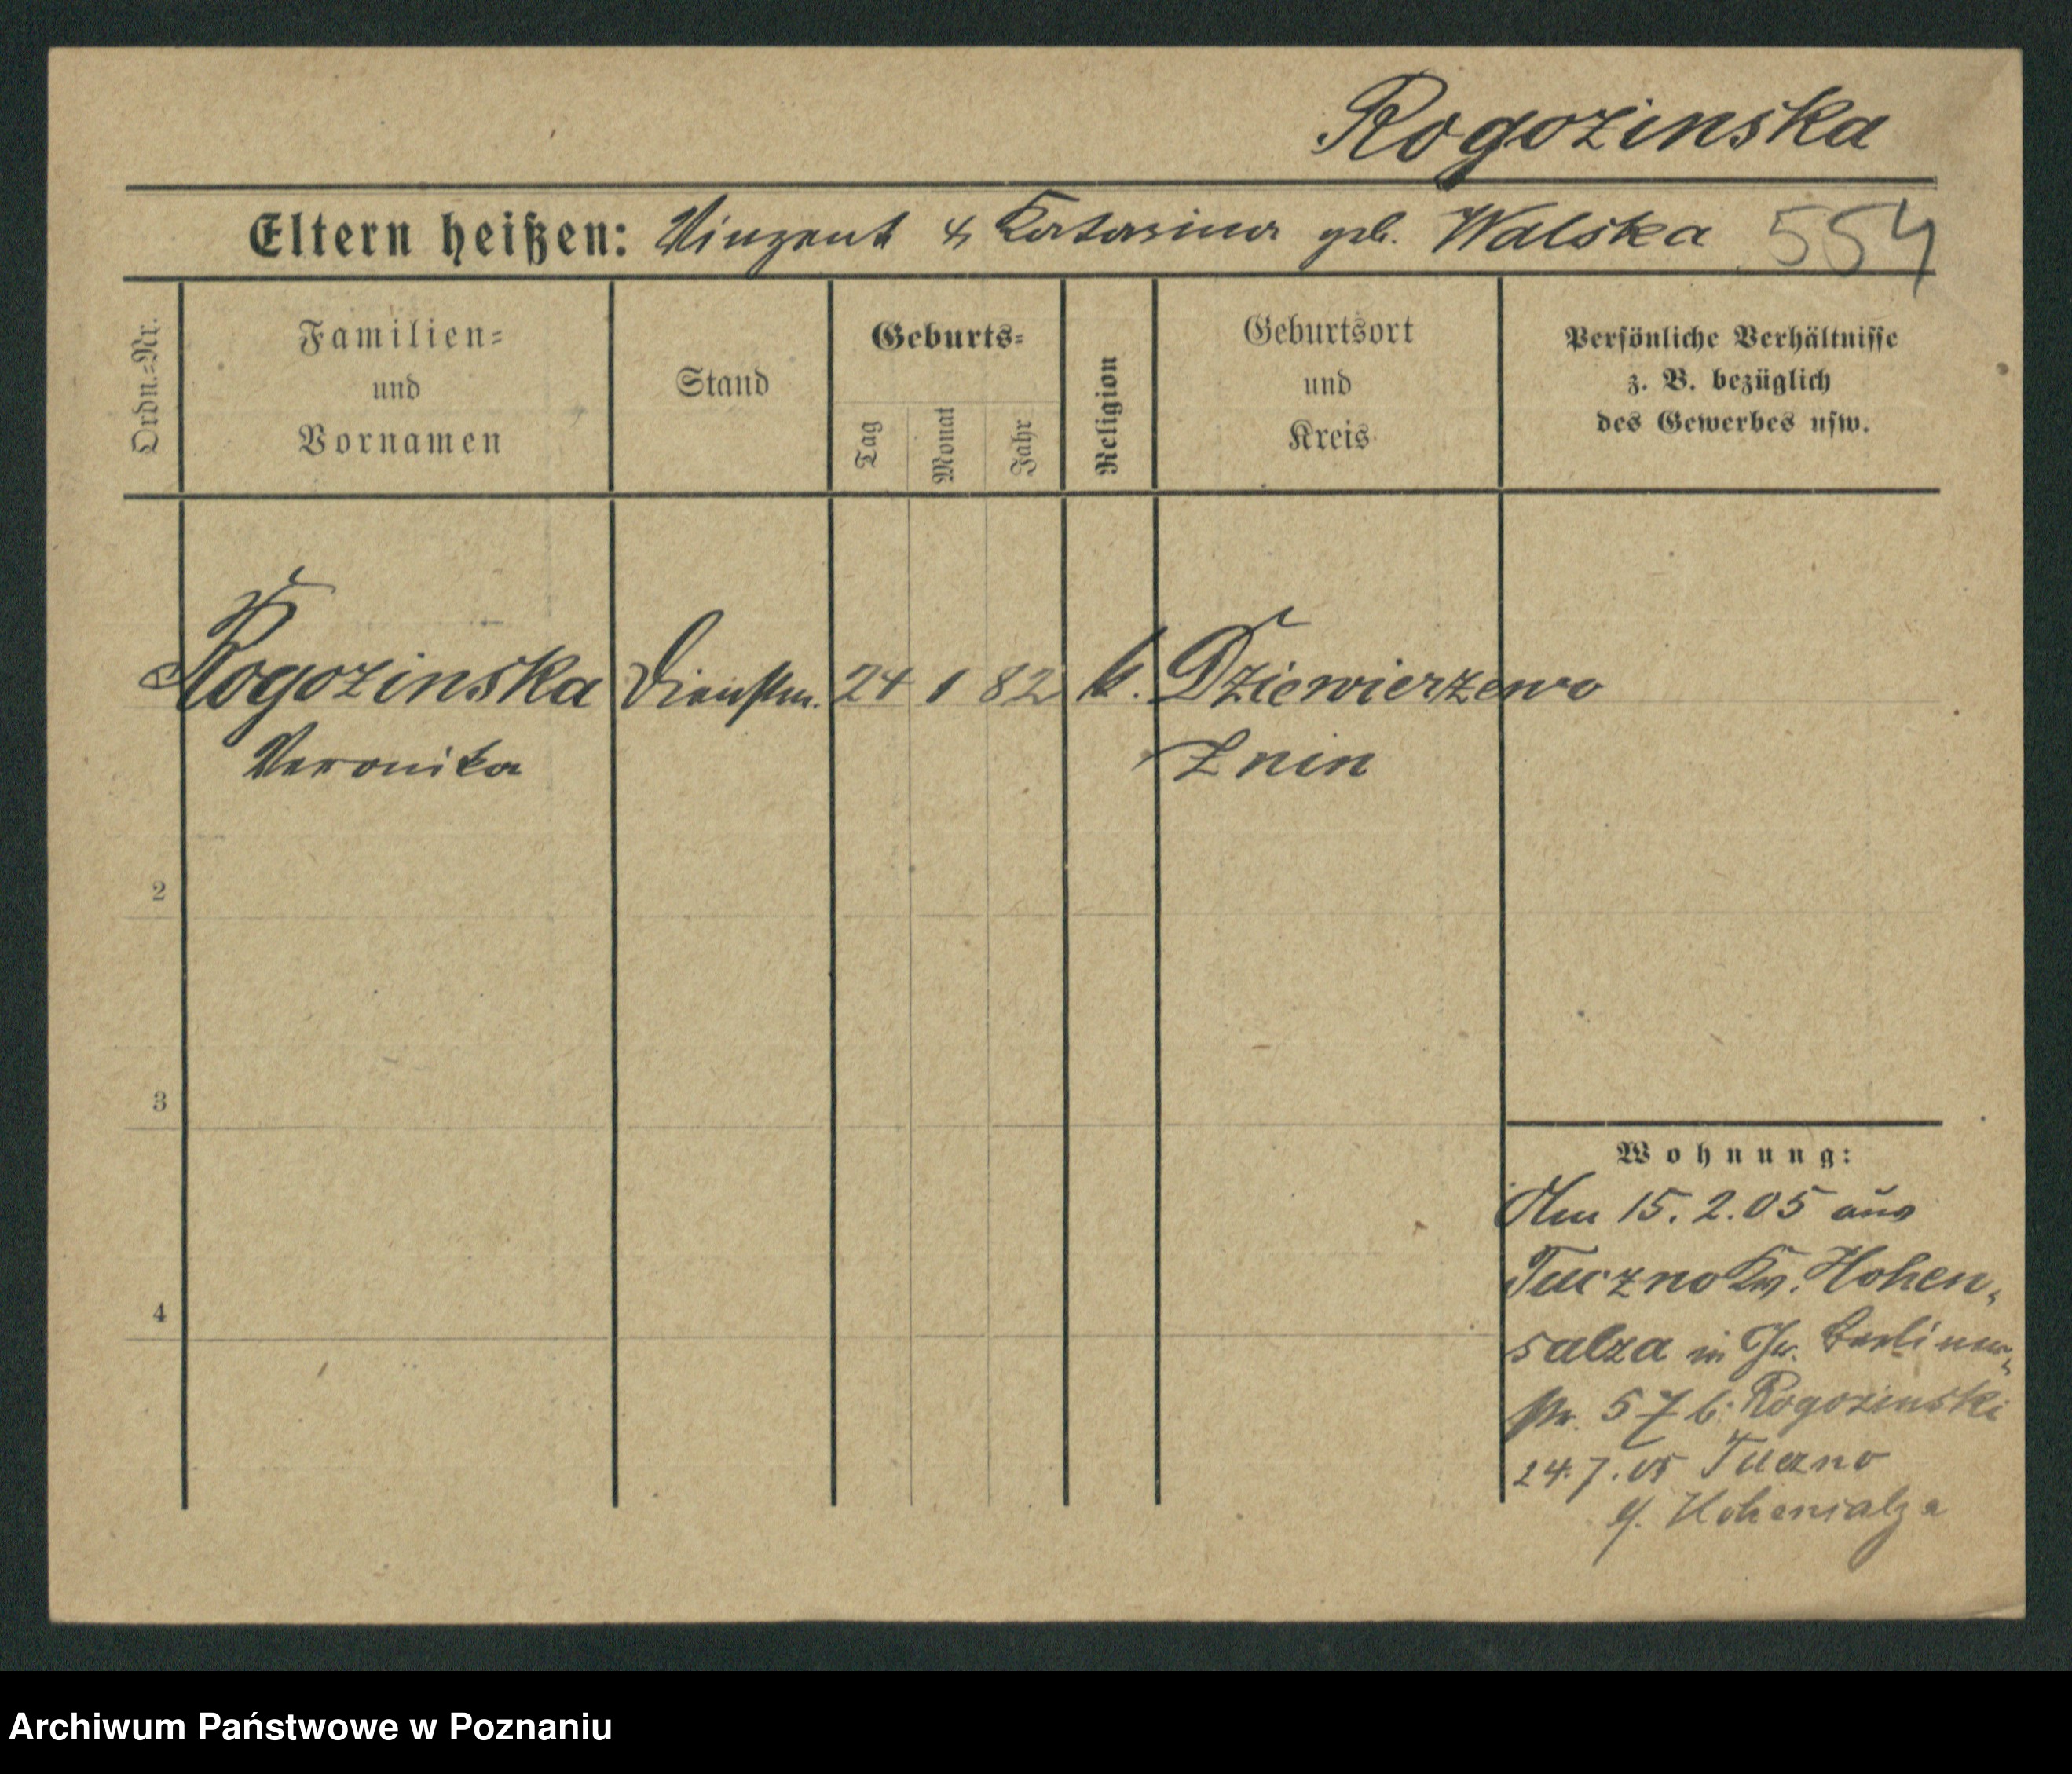 Rogozinska
Eltern heißen: Vinzent & Katarina geb. Walska 554
Ordn.-Nr.
Familien-
und
Vornamen
Stand
Geburts-
Tag
Monat
Jahr
Religion
Geburtsort
und
Kreis
Persönliche Verhältnisse
z. B. bezüglich
des Gewerbes usw.
Rogozinska Dienstm. 24 1 82 k. Dziewierzewo
Veronika Znin
2
3
4
Wohnung:
Am 15. 2. 05 aus
Tuczno Kr. Hohen-
salza in Berliner-
str. 57 b. Rogozinski
24. 7. 05 Tuczno
Hohensalza
Archiwum Państwowe w Poznaniu